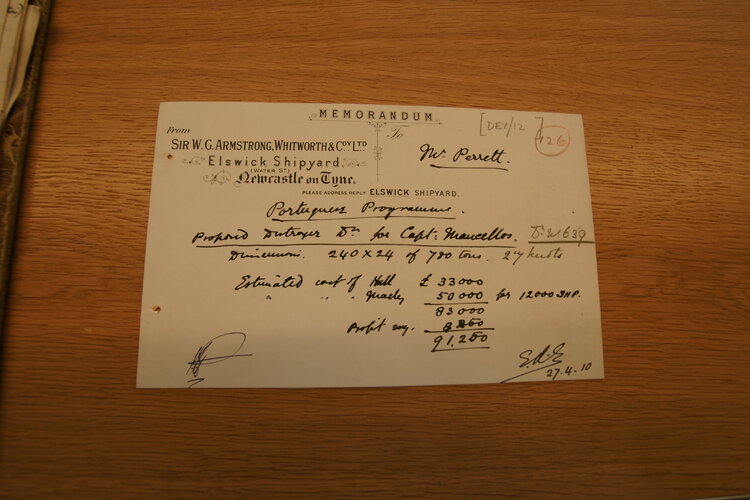 MEMORANDUM
[DEY/12]
126
From
To
SIR W. G. ARMSTRONG, WHITWORTH & COY LTD
Mr. Perrett.
Elswick Shipyard.
(WATER ST)
Newcastle on Tyne.
PLEASE ADDRESS REPLY ELSWICK SHIPYARD.
Portuguese Programme.
Proposed Destroyer Dn for Capt: Mancellos. Dn No 639
Dimensions. 240 X 24 of 780 tons. 27 knots
Estimated cost of Hull £ 33000
" " " Machy 50000 for 12000 SHP.
83000
Profit say. 8250
91,250
27.4.10